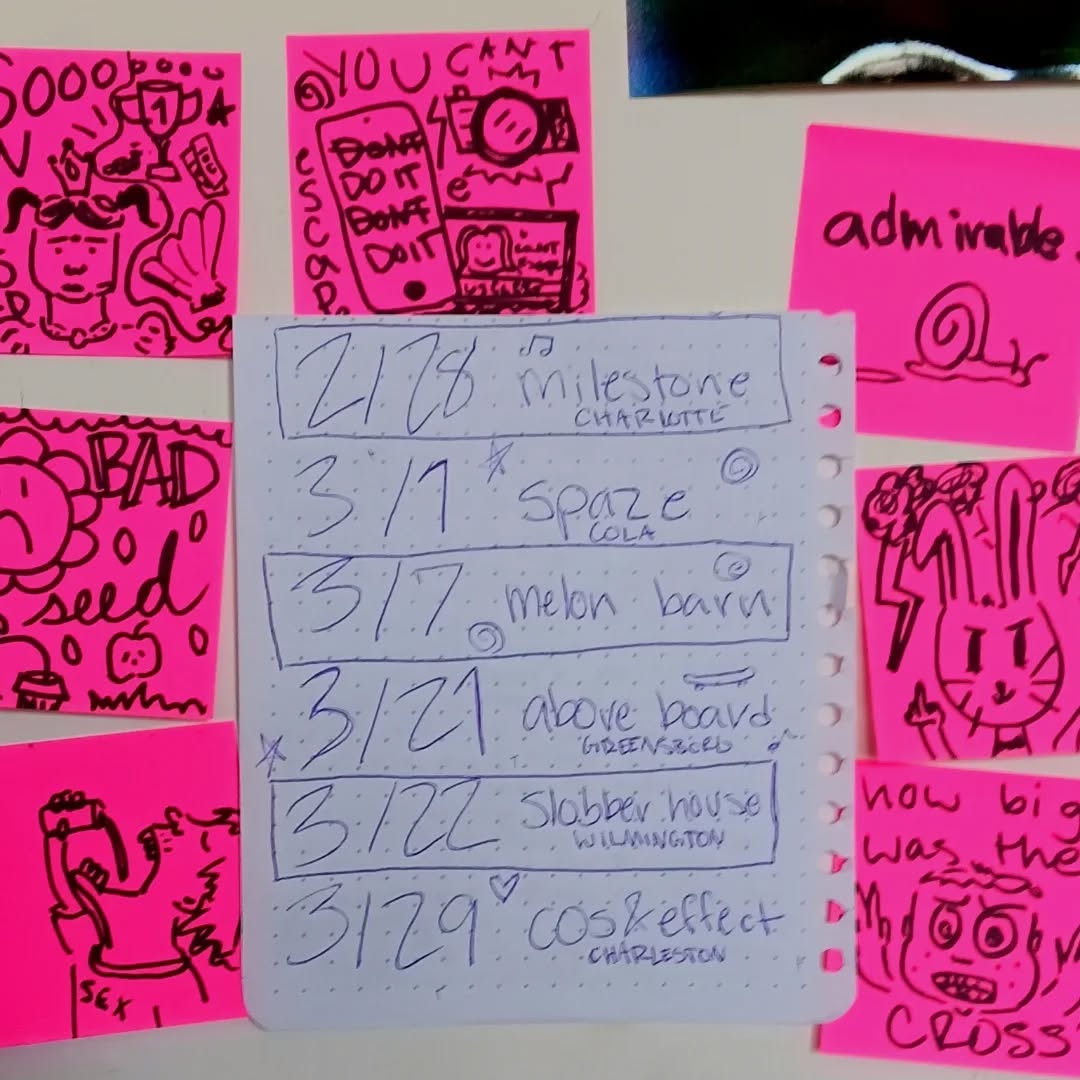 SOOO
1
YOU CANT
escape
DONT
DO IT
DONT
DO IT
admirable.
2/28 milestone
CHARLOTTE
3/1 spaze
COLA
3/7 melon barn
3/21 above board
GREENSBORO
3/22 Slobber house
WILMINGTON
3/29 cos & effect
CHARLESTON
BAD
seed
SEX
how big
was the
CROSS